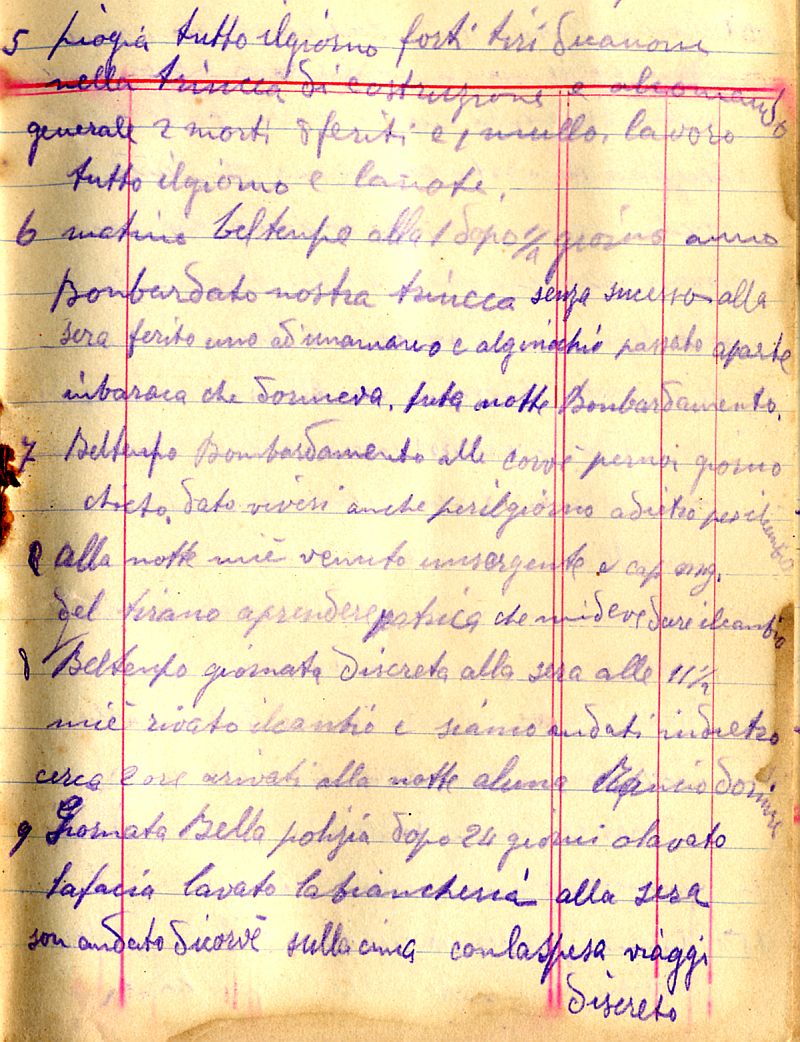 5 piogia tutto ilgiorno forti tiri dicanone
nella trincea di costruzione e alcomando
generale 2 morti 8 feriti e 1 mullo, lavoro
tutto ilgiorno e lanote.
6 matino beltenpo alla 1 dopo 1/2 giorno anno
Bonbardato nostra trincea senza sucesso alla
sera ferito uno ad'unamano e alginochio passato aparte
inbaraca che dormeva, tuta notte Bonbardamento.
7 Beltenpo Bonbardamento alle corvè pernoi giorno
cheto, dato viveri anche perilgiorno adietro per il
8 alla notte miè venuto unsergente e cap mag.
del tirano aprendere pratica che mideve dare ilcanbio
8 Beltenpo giornata discreta alla sera alle 11 1/2
miè rivato ilcanbio e siamo andati indietro
circa 2 ore arivati alla notte aluna Rancio dormire
9 Giornata Bella polizia dopo 24 giorni olavato
lafacia lavato labiancheria alla sera
son andato dicorvè sullacima conlaspesa viaggi
discreto